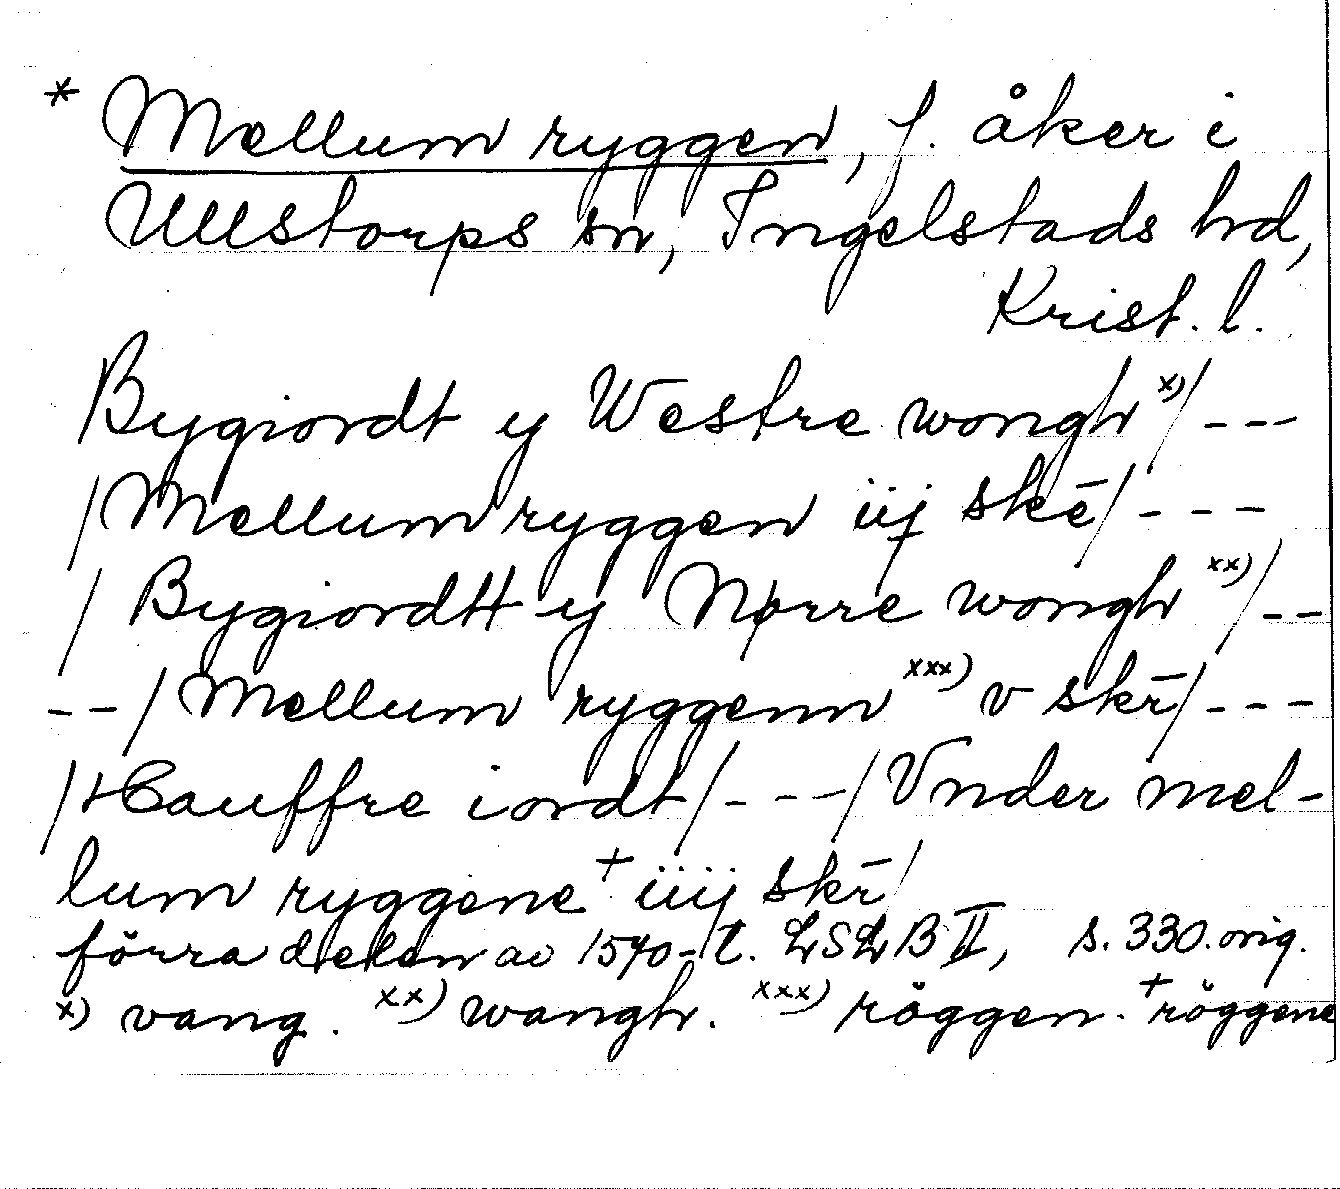 * Mellum ryggen, f. åker i
Ullstorps sn, Ingelstads hd,
Krist. l.
Bygiordt y Westre wongh x)/ ---
/Mellum ryggen iij skē/ ---
/ Bygiordtt y Nørre wongh xx)/ --
--/ Mellum ryggenn xxx) v skr̄/ ---
/Hauffre iordt/ ---/ Vnder mel-
lum ryggene + iiij skr̄/
förra delen av 1570-t. LSLB II, s. 330. orig.
x) vang. xx) wangh. xxx) röggen. + röggene